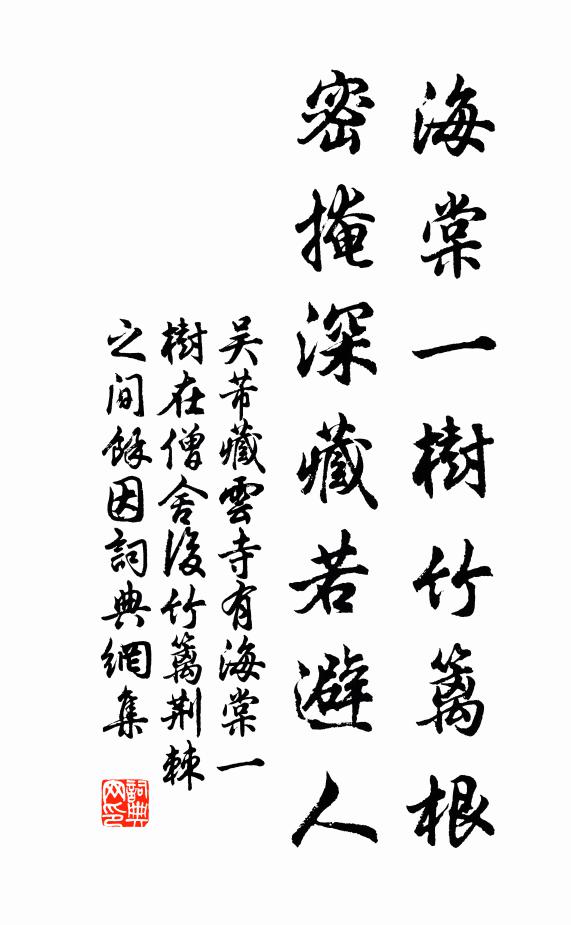 海棠一樹竹籬根
密掩深藏若避人
吴芾藏雲寺有海棠一
樹在僧舍後竹籬荆棘
之间餘因詞典網集
詞典
网印